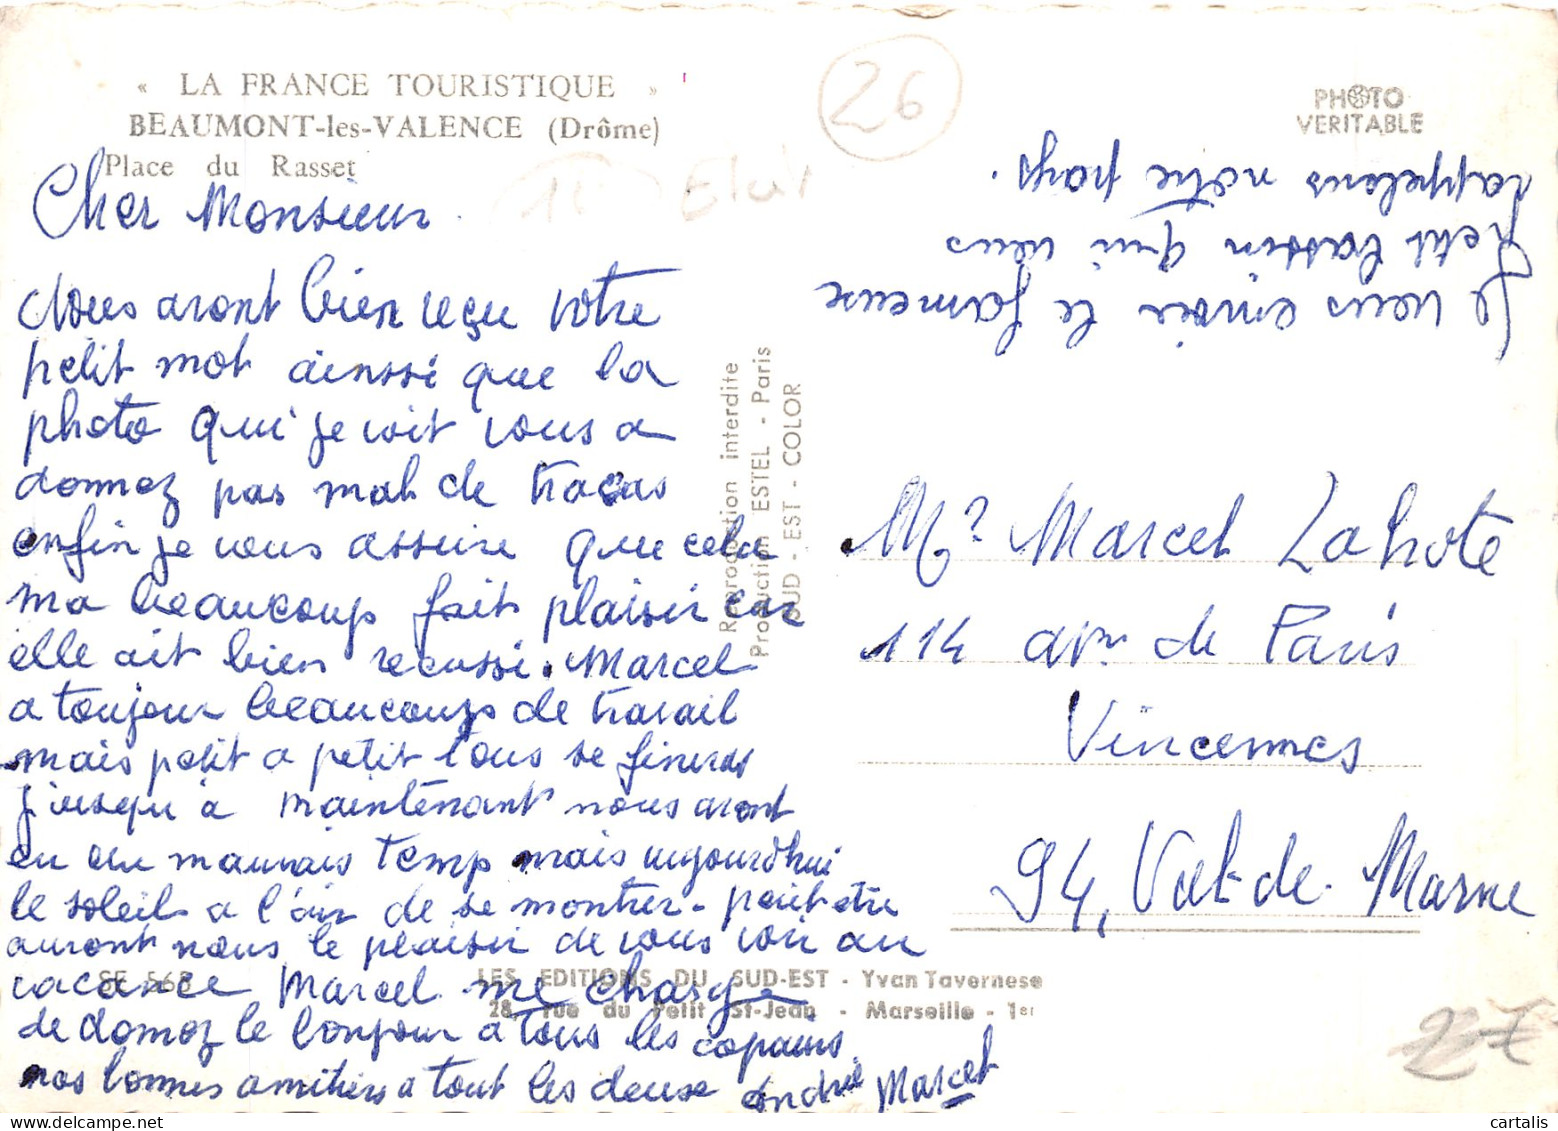 « LA FRANCE TOURISTIQUE »
BEAUMONT-les-VALENCE (Drôme)
Place du Rasset
26
PHOTO
VERITABLE
Cher Monsieur
Nous avont bien reçu votre
petit mot ainssi que la
photo qui je voit vous a
donnez pas mal de tracas
enfin je vous assure que cela
ma beaucoup fait plaisir car
elle ait bien reussi. Marcel
a toujour beaucoups de travail
mais petit a petit tous se finiras
jusqu'à maintenant nous avont
eu un mauvais temp mais aujourd'hui
le soleil a l'air de se montrer - peut etre
auront nous le plaisir de vous voir au
vacance Marcel me charge
de donnez le bonjour a tous les copains
nos bonnes amitiers a tout les deuse Andrée Marcel
Je vous envoie le fameuse
petit bassin qui vous
rappelens notre pays.
Reproduction interdite
Production ESTEL - Paris
SUD - EST - COLOR
Mr Marcel Lahote
114 avn de Paris
Vincennes
94, Val-de-Marne
SE 568
LES EDITIONS DU SUD-EST - Yvan Tavernese
28, rue du Petit St-Jean - Marseille - 1er
227
cartalis